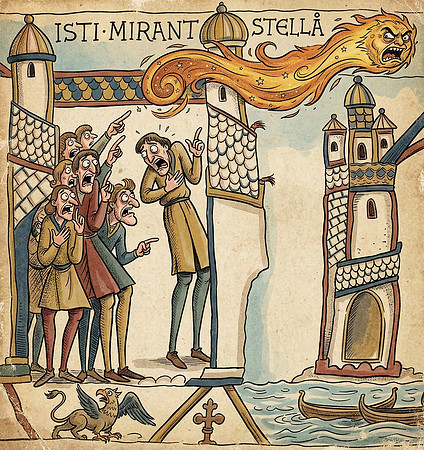 ISTI·MIRANT STELLÅ